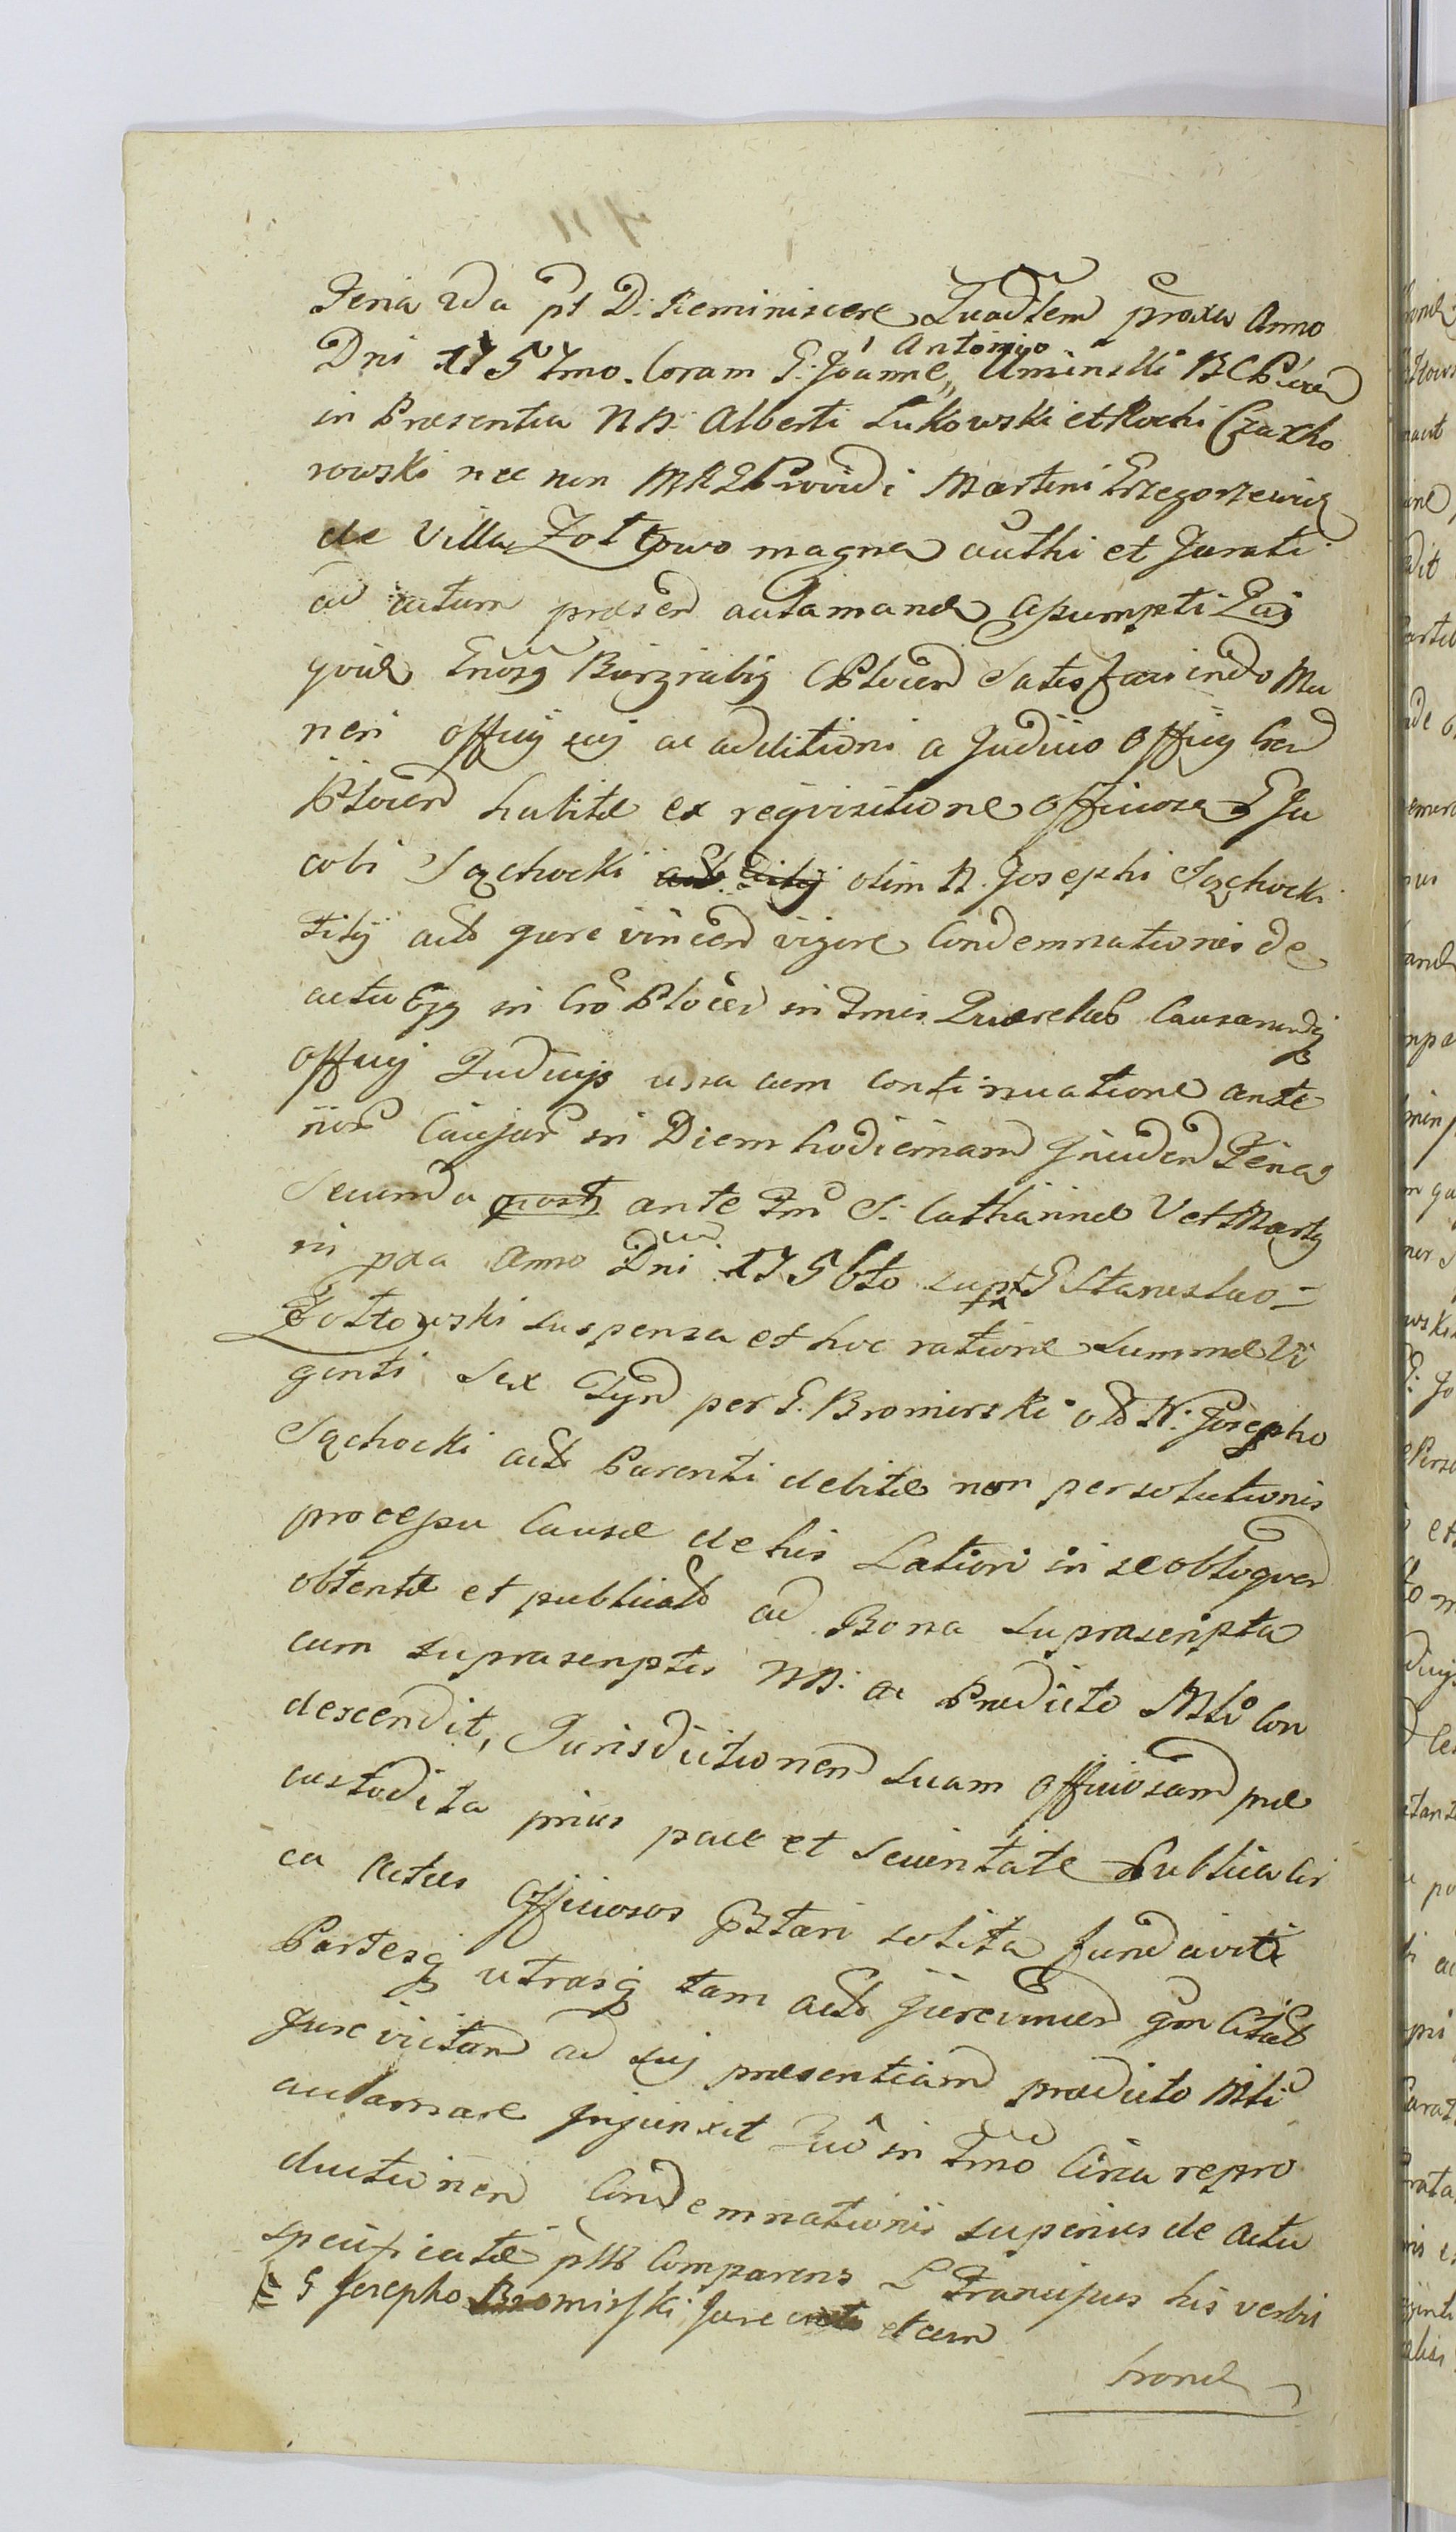 Feria 2da pt D. Reminiscere Quadlem proxa Anno
Dni 1757mo. Coram G. Joanne „ Antonio Uminski BCPłocen
in Praesentia NN. Alberti Łukowski et Rochi Czacho
rowski nec non MRG Providi Martini Grzegorzewicz
de Villa Zołtowo magna authi et Jurati
ad actum praesen acclamand assumpti Qui
quid Gnosus Burgrabius CPłocen Satisfaciendo Mu
neri officij sui ac additioni a Judicio Officij Cren
Płocen habitae ex requisitione officiosa G Ja
cobi Sączhocki olim N. Josephi Sączhocki
Filij actos jure vincen vigore Condemnationis de
actu Ejus in Cro Płocen in Tmis Querelar Causarumq
officij Judicijs una cum continuatione ante
rior Causar in Diem hodiernam Inciden Feria
Secunda post ante Fm S. Catharinae V et Martyris
in pxa Anno Dni 1756to supt G Stanislao
Zołtowski suspensa et hoc ratione summae Vi
genti Sex Tyn per G. Bromirski olo N. Josepho
Sączhocki actor Parenti debitae non persolutionis
processu Causae de his Latiori in se obloquen
obtentae et publicat ad Bona suprascripta
cum suprascriptis NN. ac Praedicto Mli Con
descendit, Jurisdictionem suam officiosam prae
custodita prius pace et securitate Publica cir
ca Actus Officiosos Pstari solita fundavit
Partesq utrasq tam actor jurevincen qm Citat
Jure victam ad sui praesentiam praedicto Mli
acclamare Injunxit Quo in Tmo Circa repro
ductionem Condemnationis superius de actu
specificatae plr Comparens G Francissus his verbis
G Josepho Bromirski Jure victo et cum
Crond